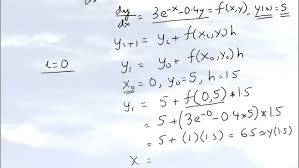 dy/dx = 3e^-x - 0.4y = f(x,y), y(0)=5
y_i+1 = y_i + f(x_i,y_i)h
i=0
y_1 = y_0 + f(x_0,y_0)h
x_0=0, y_0=5, h=1.5
y_1 = 5 + f(0,5)*1.5
= 5+(3e^-0-0.4x5)*1.5
= 5+(1)(1.5)=6.5≈y(1.5)
x =